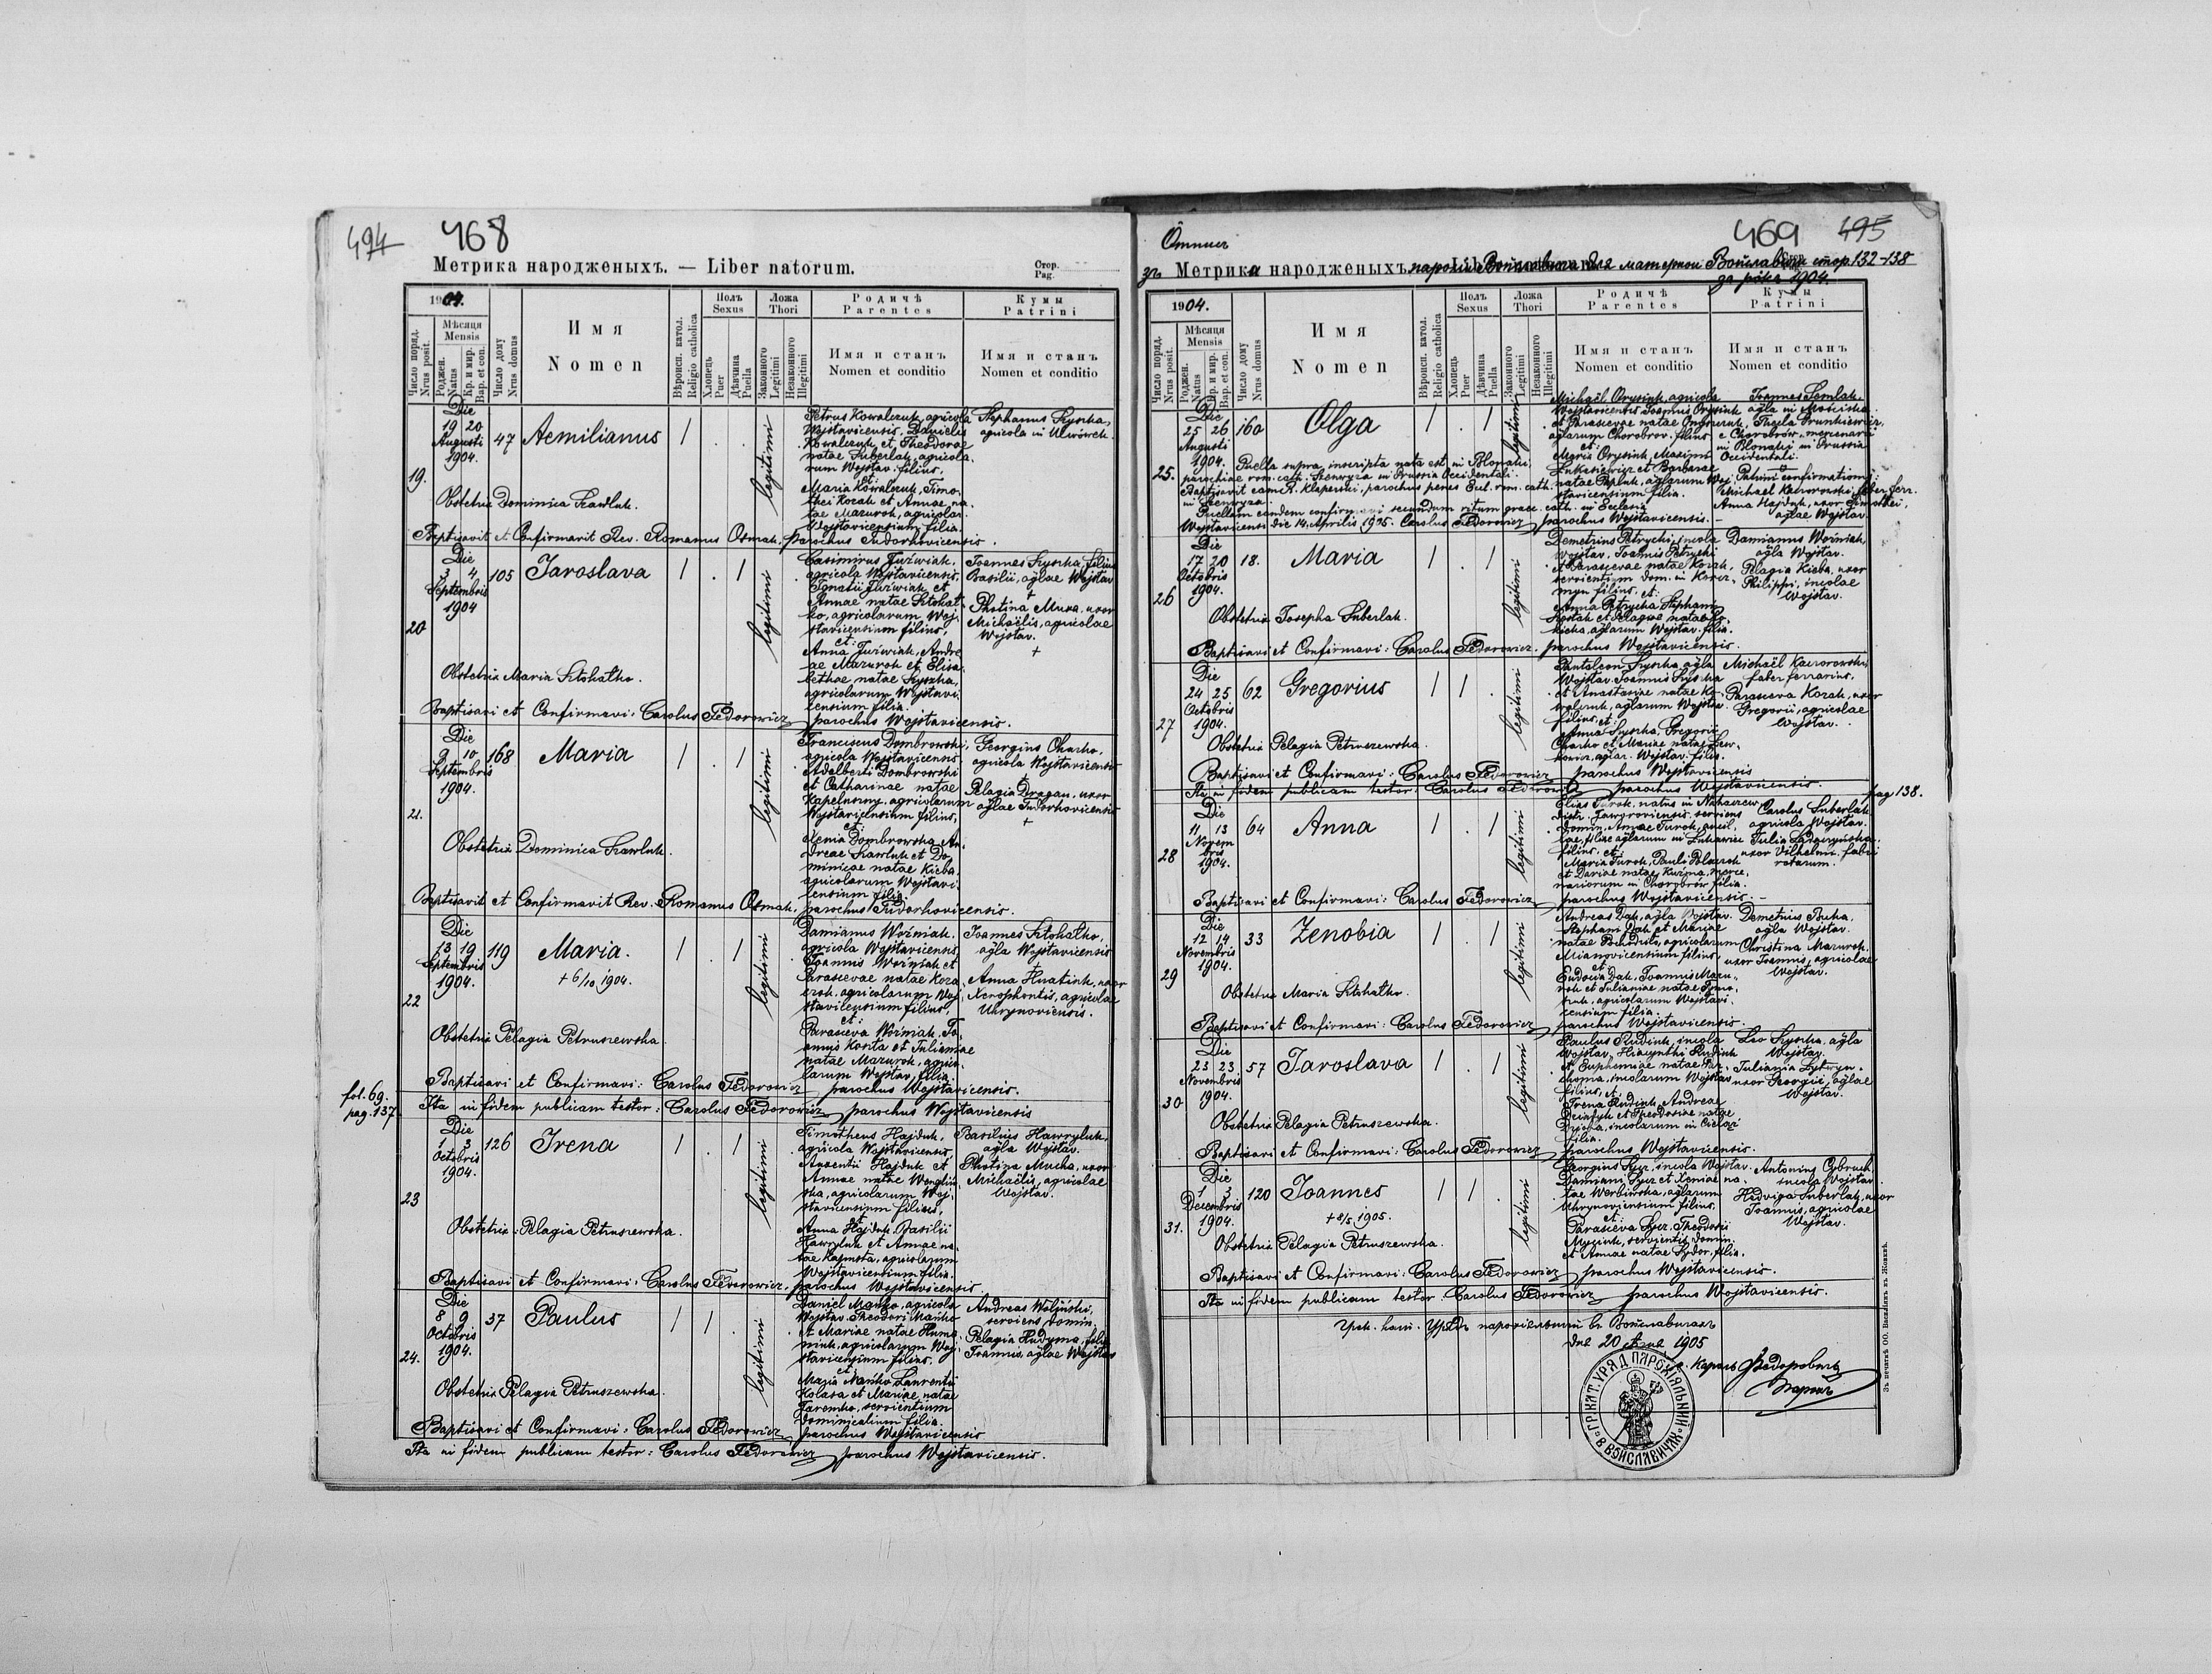 494
468
Метрика народженыхъ. — Liber natorum.
Стор.
Pag.
1904.
Число поряд.
Nrus posit.
Мѣсяця
Mensis
Роджен.
Natus
Кр. и мир.
Bap. et con.
Число дому
Nrus domus
Имя
Nomen
Вѣроисп. катол.
Religio catholica
Полъ
Sexus
Хлопець
Puer
Дѣвчина
Puella
Ложа
Thori
Законного
Legitimi
Незаконного
Illegitimi
Родичѣ
Parentes
Имя и станъ
Nomen et conditio
Кумы
Patrini
Имя и станъ
Nomen et conditio
19.
Die
19 20
Augusti
1904.
47
Aemilianus
1
legitimi
Petrus Kowalczuk, agricola
Wojstavicensis, Danielis
Kowalczuk, et Theodorae
natae Suberlak, agricola-
rum Wojstav. filius,
et:
Maria Kowalczuk, Timo-
thei Kozak et Annae na-
tae Mazurok, agricolar.
Wojstavicensium filia.
Stephanus Kyszka,
agricola in
Obstetrix Dominica Szawluk.
Baptisavit et Confirmavit Rev. Romanus Osmak, parochus Tudorkovicensis.
20
Die
3 4
Septembris
1904
105
Jaroslava
1 . 1
legitimi
Casimirus Juźwiak,
agricola Wojstavicensis,
Ignatii Juźwiak et
Annae natae Sitohat-
ko, agricolarum Woj-
stavicensium filius,
et:
Anna Juźwiak, Andre-
ae Mazurok et Elisa-
bethae natae Kyszka,
agricolarum Wojstavi-
censium filia.
Joannes Kyszka, filius
Basilii, aglae Wojstav
+
Photina Mucha, uxor
Michaëlis, agricolae
Wojstav.
+
Obstetrix Maria Sitohatko.
Baptisavi et Confirmavi: Carolus Fedorowicz parochus Wojstavicensis.
21.
Die
9 10
Septembris
1904.
168
Maria
1 . 1
legitimi
Franciscus Dombrowski,
agricola Wojstavicensis,
Adalberti Dombrowski
et Catharinae natae
agricolarum
Wojstavicensium filius,
et:
Xenia Dombrowska, An-
dreae Szawluk et Do-
minicae natae Kieba,
agricolarum Wojstavi-
censium filia.
Georgius Charko,
agricola Wojstavicensis
+
Pelagia Dragan, uxor
aglae Tudorkovicensis
+
Obstetrix Dominica Szawluk.
Baptisavit et Confirmavit Rev. Romanus Osmak, parochus Tudorkovicensis.
22
Die
13 19
Septembris
1904.
119
Maria.
+ 6/10 1904.
1 . 1
legitimi
Damianus Woźniak,
agricola Wojstavicensis,
Joannis Woźniak et
Parascevae natae Koza-
czok, agricolarum Woj-
stavicensium filius,
et:
Parasceva Woźniak, Jo-
annis Kosita et Julianae
natae Mazurok, agrico-
larum Wojstav. filia.
Joannes Sitohatko,
agla Wojstavicensis
Anna Hnatiuk, uxor
Xenophontis, agricolae
Uhrynoviensis.
Obstetrix Pelagia Petruszewska.
Baptisavi et Confirmavi: Carolus Fedorowicz parochus Wojstavicensis.
fol. 69.
pag. 137.
Ita in fidem publicam testor: Carolus Fedorowicz parochus Wojstavicensis
23
Die
1 3
Octobris
1904.
126
Irena
1 . 1
legitimi
Timotheus Hajduk,
agricola Wojstavicensis,
Auxentii Hajduk et
Annae natae
agricolarum Woj-
stavicensium filius,
et:
Anna Hajduk, Basilii
Hawryluk et Annae na-
tae Kapusta, agricolarum
Wojstavicensium filia.
Basilius Hawryluk,
agla Wojstav.
Photina Mucha, uxor
Michaëlis, agricolae
Wojstav.
Obstetrix: Pelagia Petruszewska.
Baptisavi et Confirmavi: Carolus Fedorowicz, parochus Wojstavicensis.
24.
Die
8 9
Octobris
1904.
37
Paulus
1 1 .
legitimi
Daniel Mańko, agricola
Wojstav. Theodori Mańko
et Mariae natae Hume-
niuk, agricolarum Woj-
stavicensium filius,
et:
Maria Mańko, Laurentii
Kolasa et Mariae natae
Jaremko, servientium
dominicalium filia.
Andreas Woliński,
serviens domin.
Pelagia Hudyma, filia
Joannis, aglae Wojstav
Obstetrix Pelagia Petruszewska.
Baptisavi et Confirmavi: Carolus Fedorowicz parochus Wojstavicensis
Ita in fidem publicam testor: Carolus Fedorowicz parochus Wojstavicensis.
469
495
Отпись
зъ Метрики народженыхъ парохіи Войславичи для матернои Войславичи стор. 132–138
за рôкъ 1904.
1904.
Число поряд.
Nrus posit.
Мѣсяця
Mensis
Роджен.
Natus
Кр. и мир.
Bap. et con.
Число дому
Nrus domus
Имя
Nomen
Вѣроисп. катол.
Religio catholica
Полъ
Sexus
Хлопець
Puer
Дѣвчина
Puella
Ложа
Thori
Законного
Legitimi
Незаконного
Illegitimi
Родичѣ
Parentes
Имя и станъ
Nomen et conditio
Кумы
Patrini
Имя и станъ
Nomen et conditio
25.
Die
25 26
Augusti
1904.
160
Olga
1 . 1
legitimi
Michaël Orysiuk, agricola
Wojstavicensis Joannis Orysiuk
et Parascevae natae
aglarum Chorobrov. filius
et:
Maria Orysiuk, Maximi
Lukasiewicz et Barbarae
natae Papluk, aglarum Woj-
stavicensium filia.
Joannes Semlak,
agla in Mościska.
Thecla
e Chorobrów, mercenaria
in Blonaki in Prussia
Occidentali.
Patrini confirmationis:
Michaël Kaczorowski, faber ferr.
Anna Hajduk, uxor Timothei,
aglae Wojstav.
Puella supra inscripta nata est in Blonaki,
parochiae rom. cath. in Prussia Occidentali.
Baptisavit eam R. Klaperski, parochus penes Eccl. rom. cath.
Puellam eandem confirmavi secundum ritum graec. cath. in Ecclesia
Wojstavicensi die 14 Aprilis 1905. Carolus Fedorowicz parochus Wojstavicensis.
26
Die
17 20
Octobris
1904.
18.
Maria
1 . 1
legitimi
Demetrius Petrycki, incola
Wojstav. Joannis Petrycki
et Parascevae natae Kozak,
servientium dom. in Korcz-
myn filius, et:
Anna Petrycka Stephani
Kostak et Pelagiae natae
aglarum Wojstav. filia.
Damianus Woźniak,
agla Wojstav.
Pelagia Kieba, uxor
Philippi, incolae
Wojstav.
Obstetrix Josepha Suberlak.
Baptisavi et Confirmavi: Carolus Fedorowicz. parochus Wojstavicensis.
27
Die
24 25
Octobris
1904.
62
Gregorius
1 1 .
legitimi
Pantaleon Kyszka, agla
Wojstav. Joannis Kyszka
et Anastasiae natae Ko-
walczuk, aglarum Wojstav.
filius, et:
Anna Kyszka, Gregorii
Charko et Mariae natae Lew-
kowicz, aglar. Wojstav. filia.
Michaël Kaczorowski,
faber ferrarius.
Parasceva Kozak, uxor
Gregorii, agricolae
Wojstav.
Obstetrix Pelagia Petruszewska.
Baptisavi et Confirmavi: Carolus Fedorowicz parochus Wojstavicensis
Ita in fidem publicam testor: Carolus Fedorowicz parochus Wojstavicensis.
pag 138.
28
Die
11 13
Novem
bris
1904.
64
Anna
1 . 1
legitimi
Elias Turok, natus in
distr. Jaworoviensis, serviens
domin. Annae Turok, ancil-
lae, filiae aglarum in Lukawiec
filius, et:
Maria Turok, Pauli
et Dariae natae Kuźma, merce-
nariorum in Chorobrów filia.
Carolus Suberlak,
agricola Wojstav.
Julia
uxor Vilhelmi, fabri
rotarum.
Baptisavi et Confirmavi: Carolus Fedorowicz parochus Wojstavicensis.
29
Die
12 14
Novembris
1904.
33
Zenobia
1 . 1
legitimi
Andreas Dak, agla Wojstav.
Stephani Dak et Mariae
natae agricolarum
Mianovicensium filius,
et:
Eudocia Dak, Joannis Mazu-
rok et Julianae natae
agricolarum Wojstavi-
censium filia.
Demetrius Puka,
agla Wojstav.
Christina Mazurok,
uxor Joannis, agricolae
Wojstav.
Obstetrix Maria Sitohatko.
Baptisavi et Confirmavi: Carolus Fedorowicz parochus Wojstavicensis.
30
Die
23 23
Novembris
1904.
57
Jaroslava
1 . 1
legitimi
Paulus Rudiuk, incola
Wojstav. Hiacynthi Rudiuk
et Euphemiae natae Par-
choma, incolarum Wojstav
filius, et:
Irena Rudiuk, Andreae
et Theodosiae natae
incolarum in Cieląż
filia.
Leo Kyszka, agla
Wojstav.
Juliania Lytwyn,
uxor Georgii, aglae
Wojstav.
Obstetrix Pelagia Petruszewska.
Baptisavi et Confirmavi: Carolus Fedorowicz parochus Wojstavicensis.
31.
Die
1 3
Decembris
1904.
120
Joannes
+ 8/5 1905.
1 1 .
legitimi
Georgius Sycz, incola Wojstav.
Damiani Sycz et Xeniae na-
tae Werbińska, aglarum
Uhrynoviensium filius,
et:
Parasceva Sycz, Theodosii
servientis domin.
et Annae natae Sydor, filia.
Antonius Cybruch,
incola Wojstav.
Hedviga Suberlak, uxor
Joannis, agricolae
Wojstav.
Obstetrix Pelagia Petruszewska.
Baptisavi et Confirmavi: Carolus Fedorowicz parochus Wojstavicensis.
Ita in fidem publicam testor: Carolus Fedorowicz parochus Wojstavicensis.
Грек. кат. Урядъ парохіяльный въ Войславичахъ
дня 20 1905
о. Кароль Федоровичъ
парохъ
ГР. КАТ. УРЯД ПАРОХІЯЛЬНИЙ В ВОЙСЛАВИЧАХ
Зъ печатнѣ ОО. Василіянъ въ Жовквѣ.